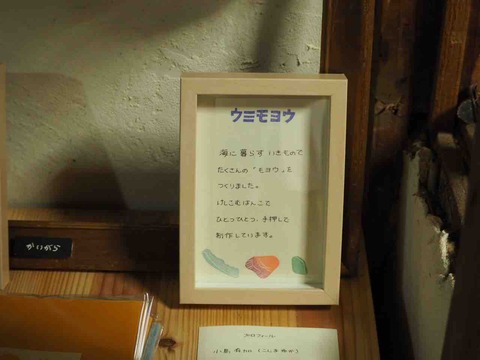 ウミモヨウ
海に暮らすいきもので
たくさんの「モヨウ」を
つくりました。
けしごむはんこで
ひとつひとつ、手押しで
制作しています。
かいがら
プロフィール